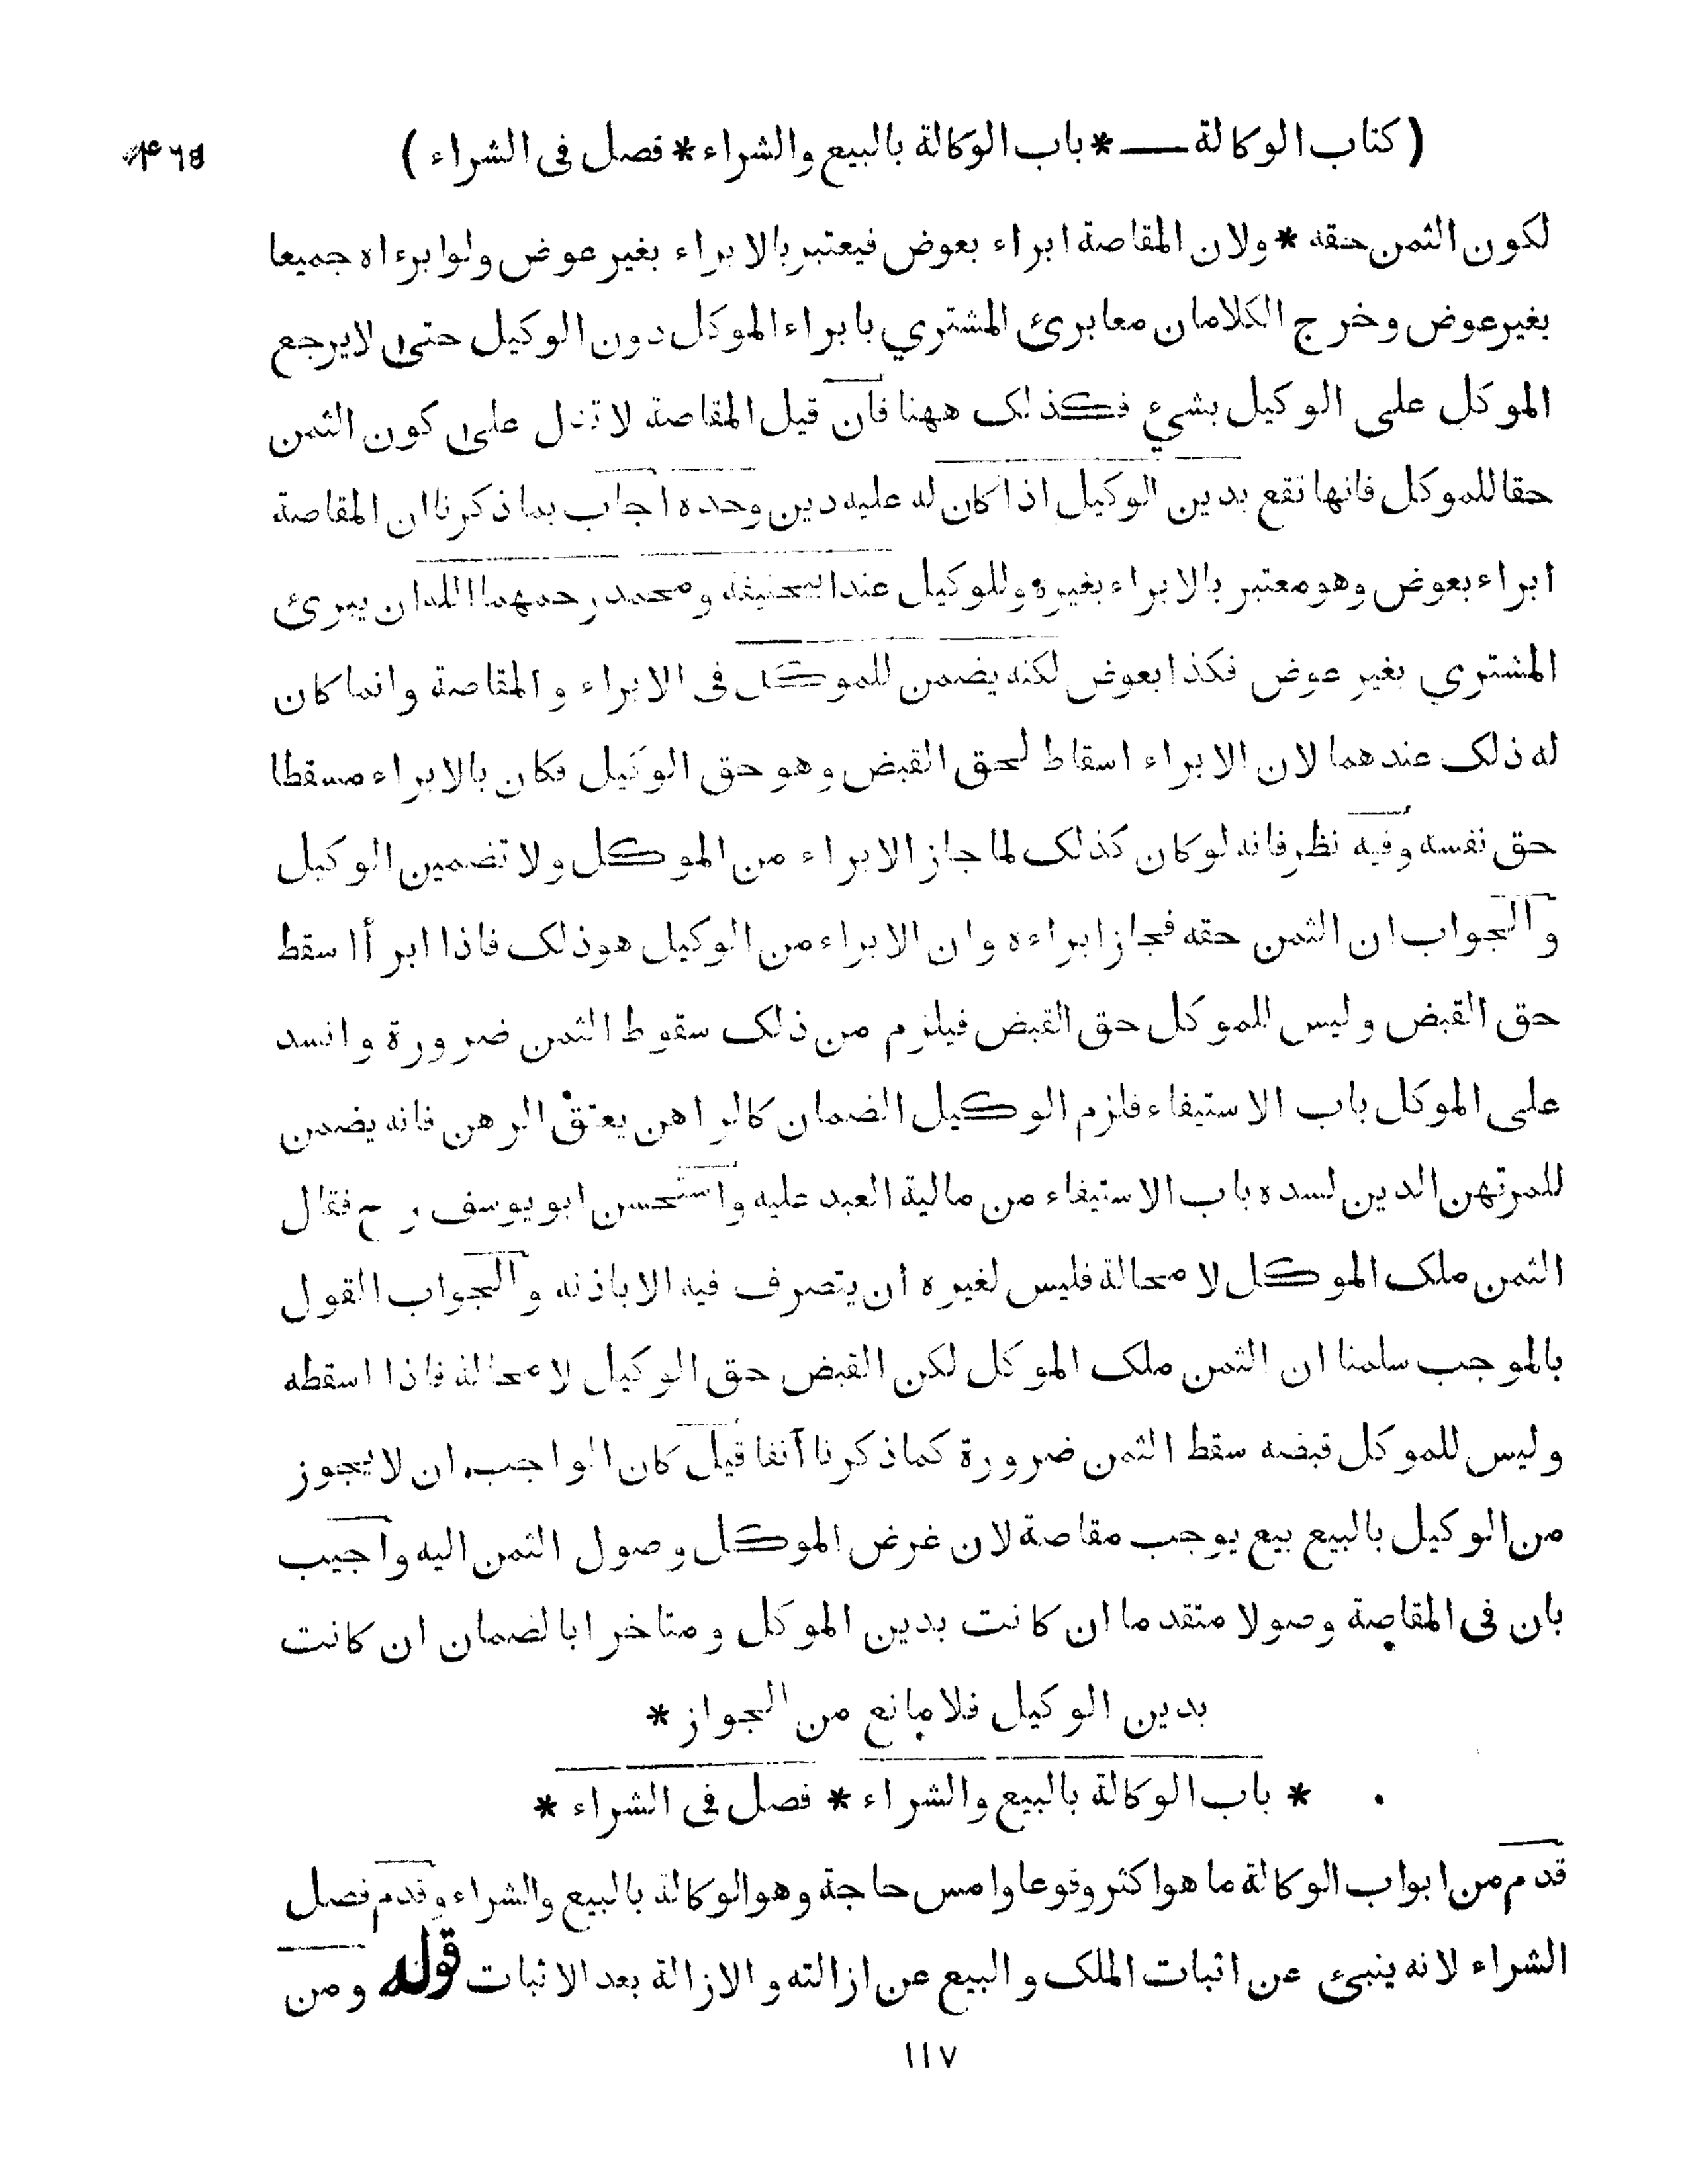 ( كتاب الوكالة ــــ * باب الوكالة بالبيع والشراء * فصل فى الشراء )
لكون الثمن حقه * ولان المقاصة ابراء بعوض فيعتبر بالابراء بغير عوض ولو ابرءاه جميعا
بغير عوض وخرج الكلامان معا برئ المشتري بابراء الموكل دون الوكيل حتى لايرجع
الموكل على الوكيل بشيء فكذلك ههنا فان قيل المقاصة لا تدل على كون الثمن
حقا للموكل فانها تقع بدين الوكيل اذا كان له عليه دين وحده اجاب بما ذكرنا ان المقاصة
ابراء بعوض وهو معتبر بالابراء بغيره وللوكيل عند ابيحنيفة ومحمد رحمهما الله ان يبرئ
المشتري بغير عوض فكذا بعوض لكنه يضمن للموكل فى الابراء و المقاصة وانما كان
له ذلك عندهما لان الابراء اسقاط لحق القبض وهو حق الوكيل فكان بالابراء مسقطا
حق نفسه وفيه نظر فانه لو كان كذلك لما جاز الابراء من الموكل ولا تضمين الوكيل
والجواب ان الثمن حقه فجاز ابراءه وان الابراء من الوكيل هوذلك فاذا ابرأ اسقط
حق القبض وليس للموكل حق القبض فيلزم من ذلك سقوط الثمن ضرورة وانسد
على الموكل باب الاستيفاء فلزم الوكيل الضمان كالراهن يعتق الرهن فانه يضمن
للمرتهن الدين لسده باب الاستيفاء من مالية العبد عليه واستحسن ابو يوسف رح فقال
الثمن ملك الموكل لا محالة فليس لغيره ان يتصرف فيه الا باذنه والجواب القول
بالموجب سلمنا ان الثمن ملك الموكل لكن القبض حق الوكيل لا محالة فاذا اسقطه
وليس للموكل قبضه سقط الثمن ضرورة كما ذكرنا آنفا قيل كان الواجب ان لا يجوز
من الوكيل بالبيع بيع يوجب مقاصة لان غرض الموكل وصول الثمن اليه واجيب
بان فى المقاصة وصولا متقدما ان كانت بدين الموكل ومتاخرا بالضمان ان كانت
بدين الوكيل فلا مانع من الجواز *
* باب الوكالة بالبيع والشراء * فصل فى الشراء *
قدم من ابواب الوكالة ما هو اكثر وقوعا وامس حاجة وهو الوكالة بالبيع والشراء وقدم فصل
الشراء لانه ينبئ عن اثبات الملك و البيع عن ازالته و الازالة بعد الاثبات قوله ومن
١١٧